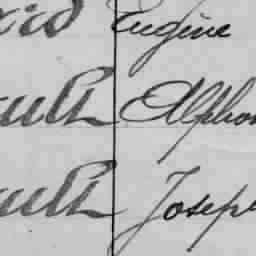 Eugène
ault Alphon
ault Joseph